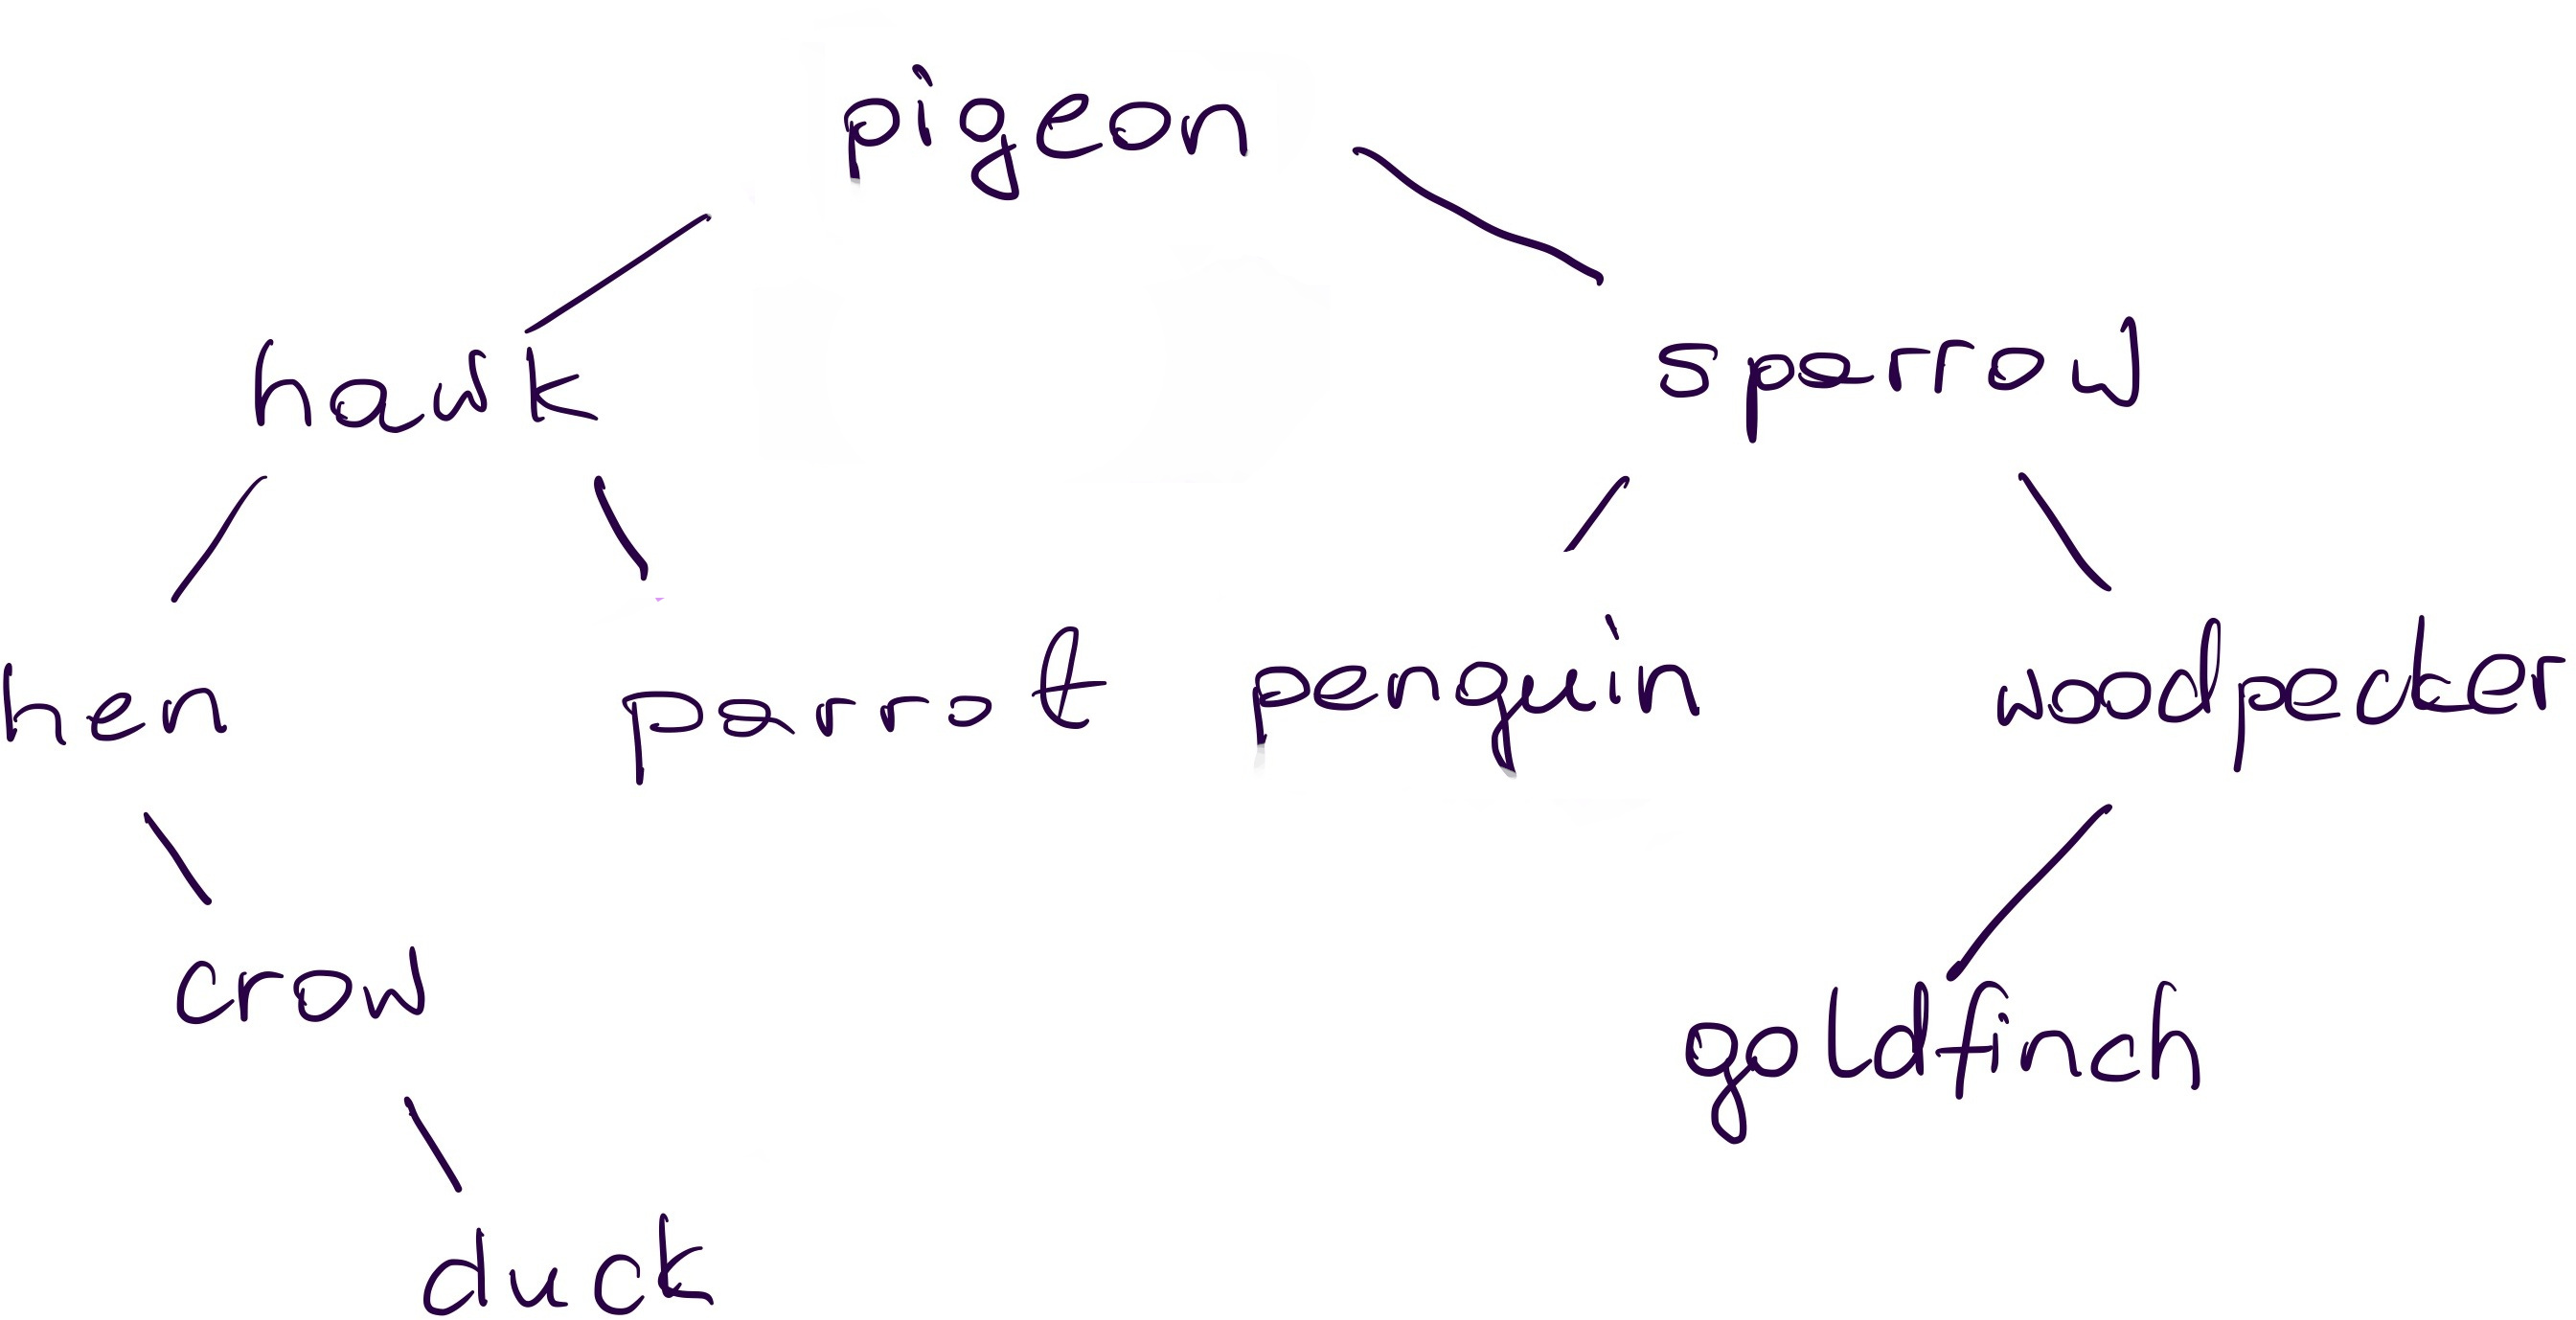 pigeon
hawk sparrow
hen parrot penguin woodpecker
crow goldfinch
duck